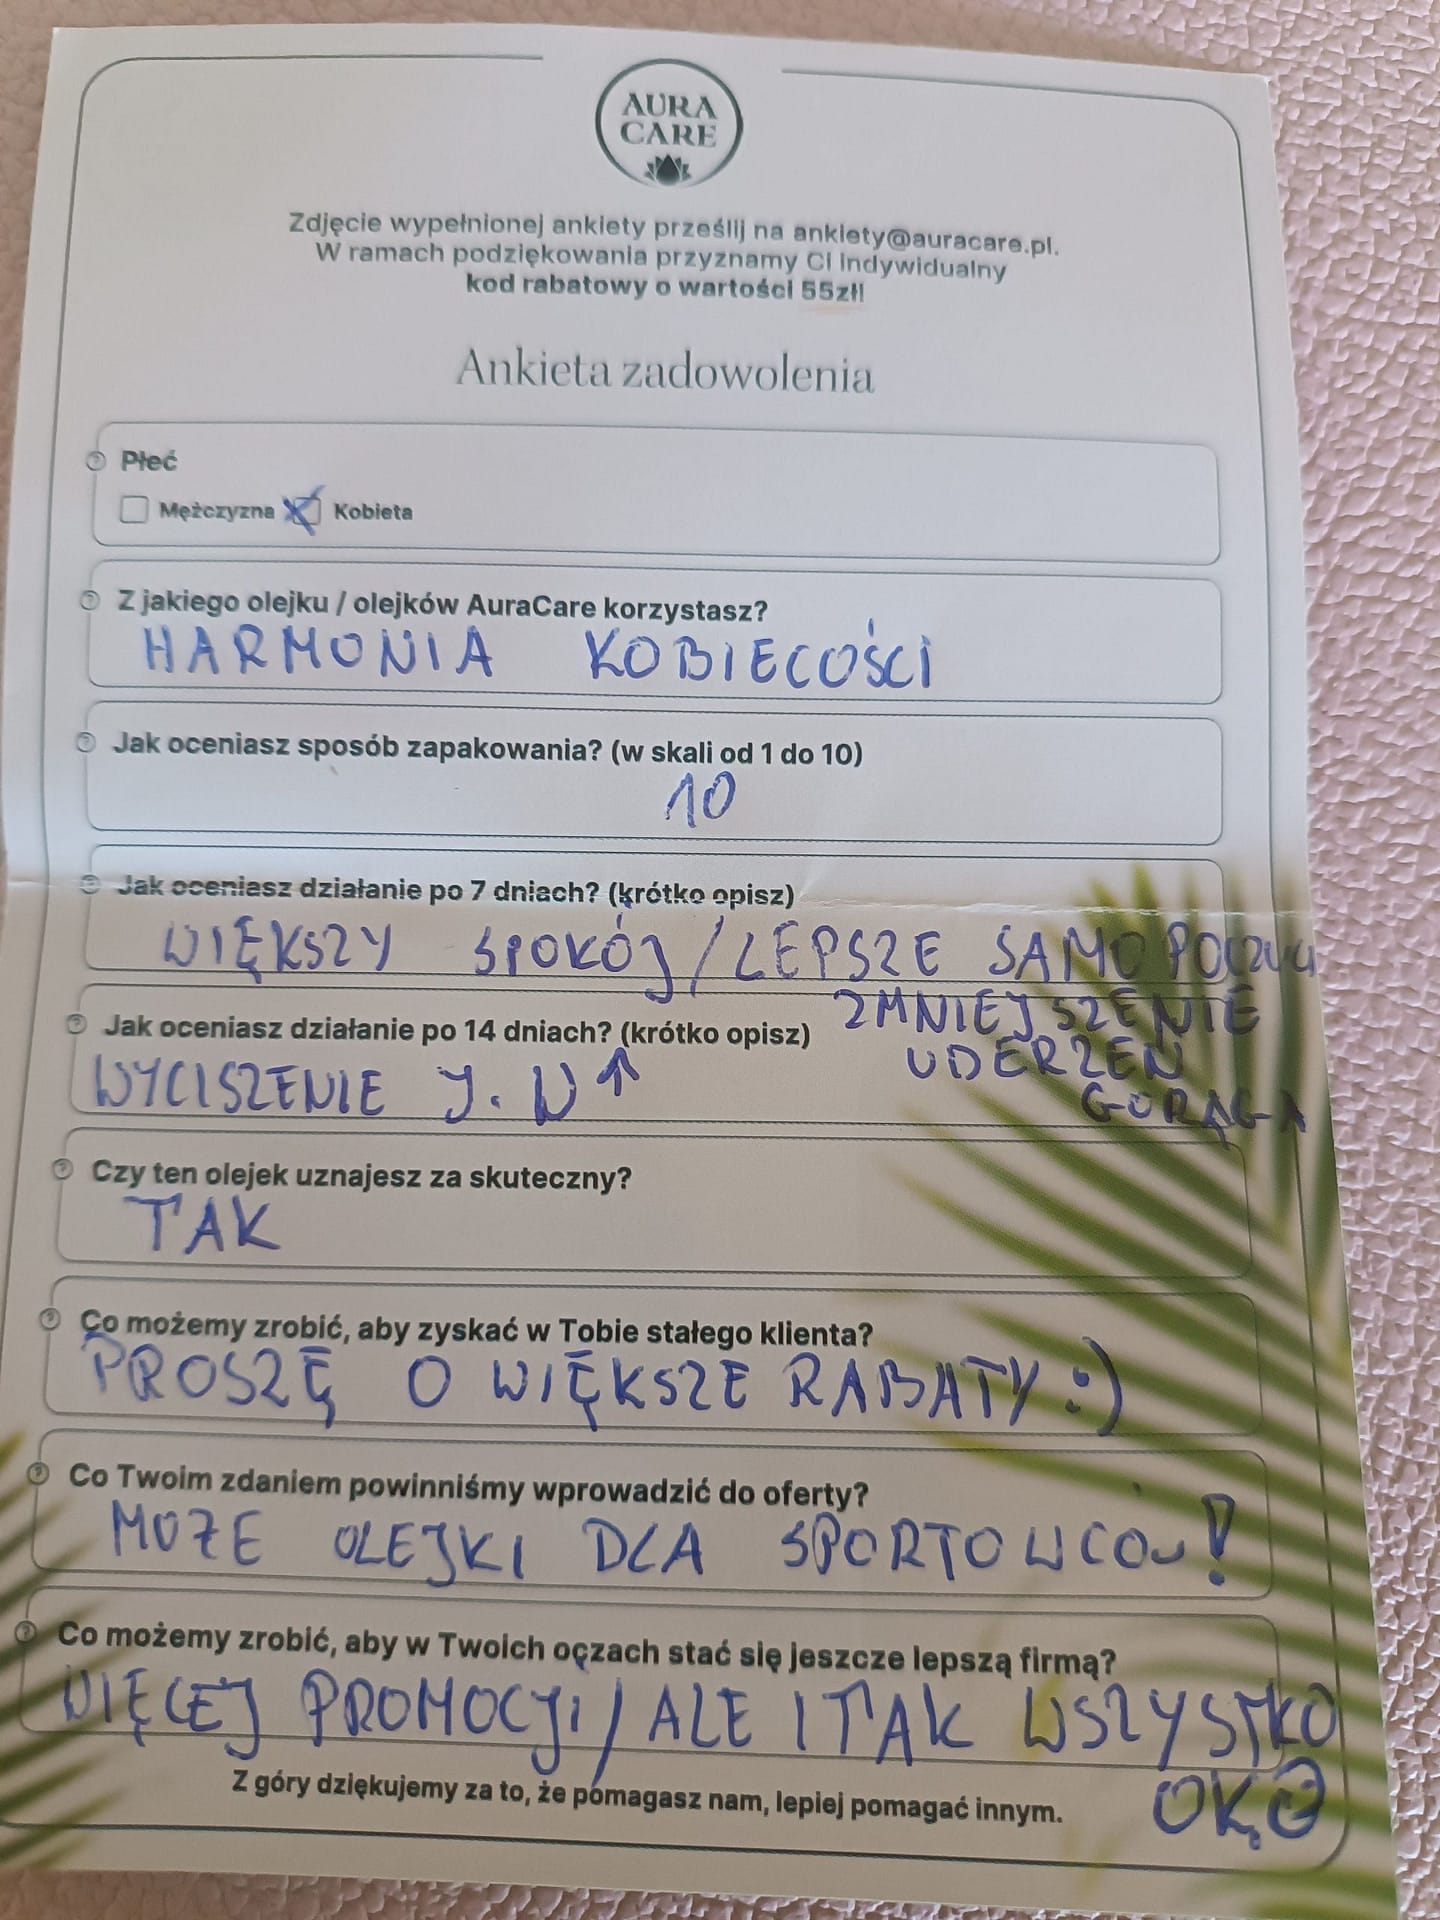 AURA
CARE
Zdjęcie wypełnionej ankiety prześlij na ankiety@auracare.pl.
W ramach podziękowania przyznamy Ci indywidualny
kod rabatowy o wartości 55zł!
Ankieta zadowolenia
Płeć
Mężczyzna Kobieta
Z jakiego olejku / olejków AuraCare korzystasz?
HARMONIA KOBIECOŚCI
Jak oceniasz sposób zapakowania? (w skali od 1 do 10)
10
Jak oceniasz działanie po 7 dniach? (krótko opisz)
WIĘKSZY SPOKÓJ / LEPSZE SAMOPOCZUCI
Jak oceniasz działanie po 14 dniach? (krótko opisz)
WYCISZENIE J. W ↑
ZMNIEJSZENIE
UDERZEŃ
GORĄCA
Czy ten olejek uznajesz za skuteczny?
TAK
Co możemy zrobić, aby zyskać w Tobie stałego klienta?
PROSZĘ O WIĘKSZE RABATY :)
Co Twoim zdaniem powinniśmy wprowadzić do oferty?
MOŻE OLEJKI DLA SPORTOWCOW!
Co możemy zrobić, aby w Twoich oczach stać się jeszcze lepszą firmą?
WIĘCEJ PROMOCJI / ALE I TAK WSZYSTKO
OK
Z góry dziękujemy za to, że pomagasz nam, lepiej pomagać innym.